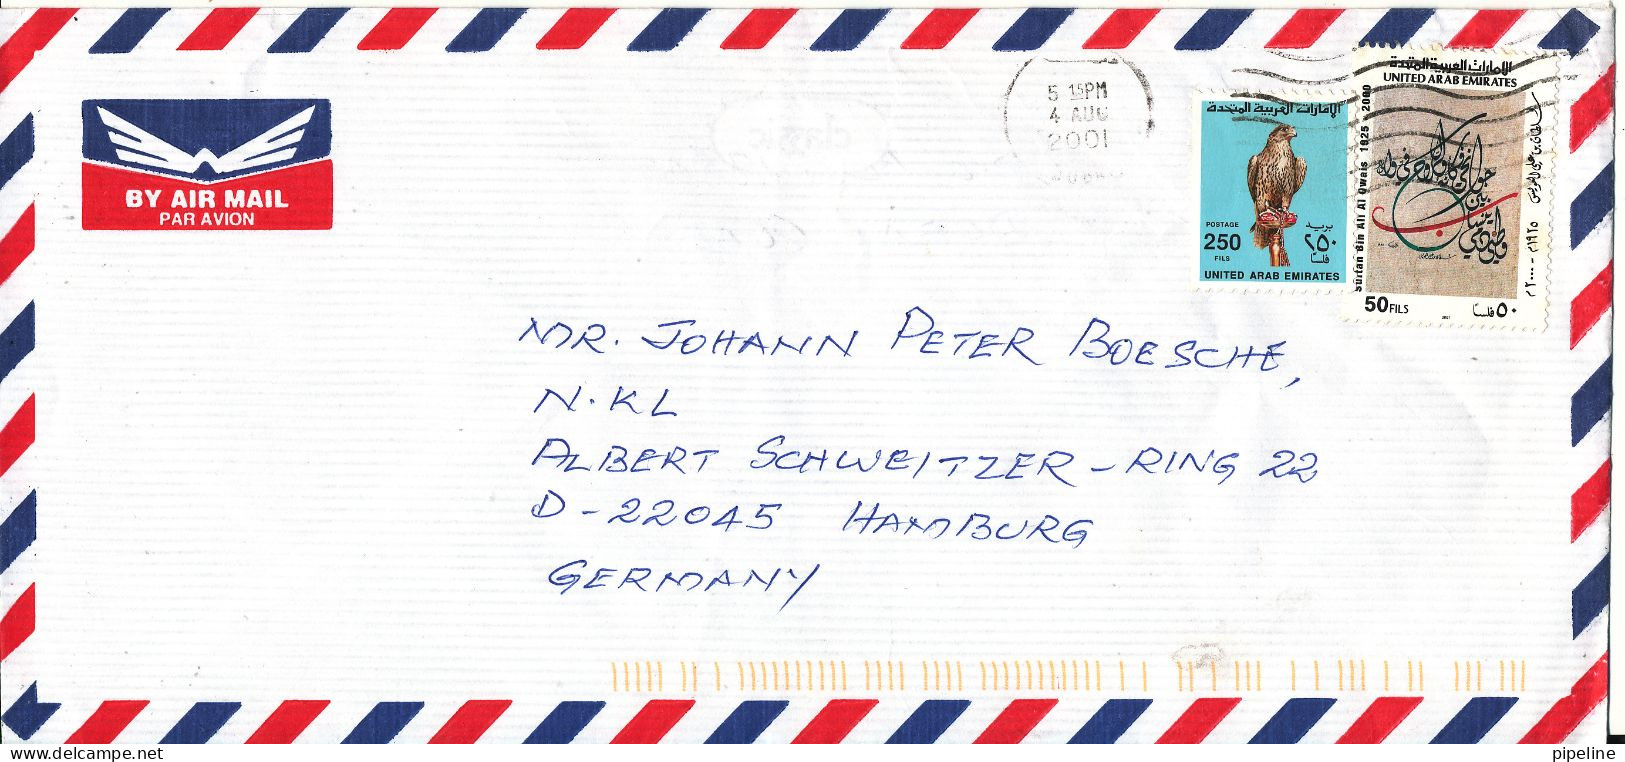 BY AIR MAIL
PAR AVION
5 15PM
4 AUG
2001
الإمارات العربية المتحدة
POSTAGE
250
FILS
بريد
٢٥٠
فلسا
UNITED ARAB EMIRATES
الإمارات العربية المتحدة
UNITED ARAB EMIRATES
Sultan Bin Ali Al Qwais 1925 - 2000
سلطان بن علي العويس ١٩٢٥م - ٢٠٠٠م
50 FILS
٥٠ فلسا
MR. JOHANN PETER BOESCHE,
N.KL
ALBERT SCHWEITZER - RING 22
D - 22045 HAMBURG
GERMANY
delcampe.net
pipeline